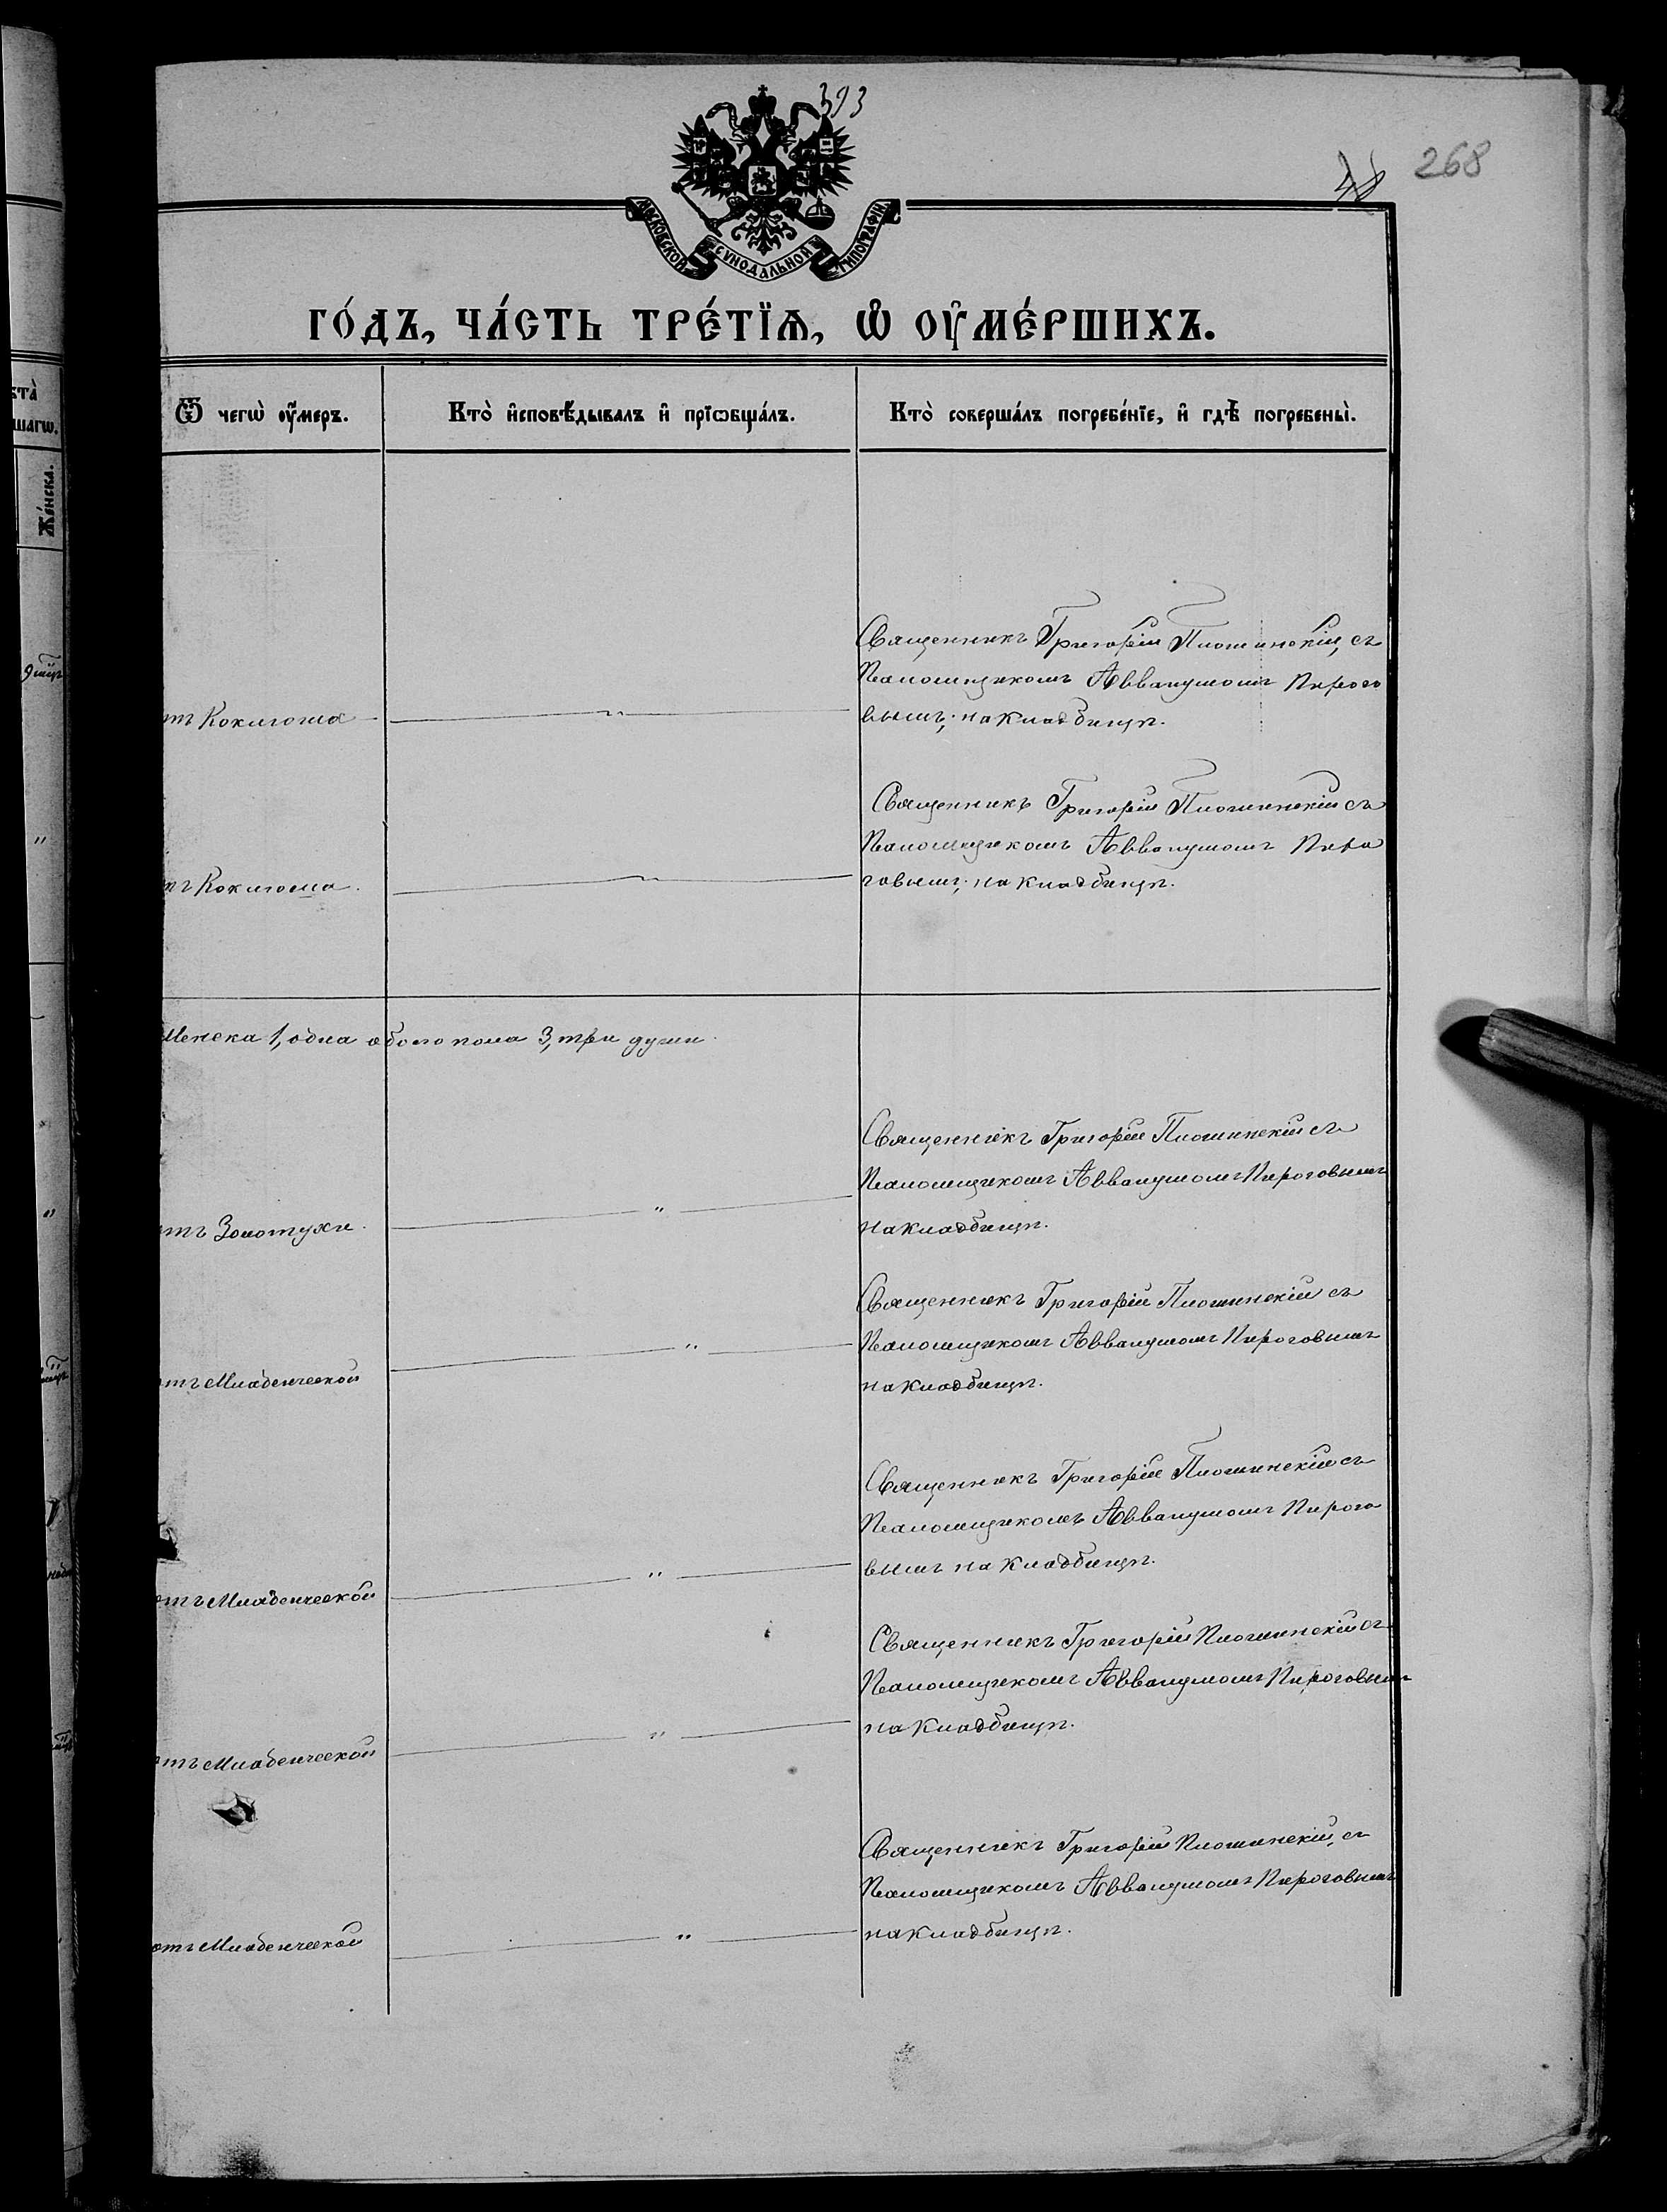 393
268
МОСКОВСКОЙ СѴНОДАЛЬНОЙ ТИПОГРАФІИ
ГО́ДЪ, ЧА́СТЬ ТРЕ́ТЇѦ, Ѡ ОУМЕ́РШИХЪ.
Ѿ чегѡ̀ оу҆́меръ.
Кто̀ и҆сповѣ́дывалъ и҆ прїѡбща́лъ.
Кто̀ соверша́лъ погребе́нїе, и҆ гдѣ̀ погребены̀.
Же́нска.
Священникъ Григорій Плошинскій, съ
Псаломщикомъ Аввакумомъ Пирого
вымъ; на кладбищѣ.
отъ Коклюша
Священникъ Григорій Плошинскій съ
Псаломщикомъ Аввакумомъ Пиро
говымъ; на кладбищѣ.
отъ Коклюша.
Женска 1, одна обоего пола 3, три души.
Священникъ Григорій Плошинскій съ
Псаломщикомъ Аввакумомъ Пироговымъ
на кладбищѣ.
отъ Золотухи.
Священникъ Григорій Плошинскій съ
Псаломщикомъ Аввакумомъ Пироговымъ
на кладбищѣ.
отъ Младенческой
Священникъ Григорій Плошинскій съ
Псаломщикомъ Аввакумомъ Пирого
вымъ на кладбищѣ.
отъ Младенческой
Священникъ Григорій Плошинскій съ
Псаломщикомъ Аввакумомъ Пироговымъ
на кладбищѣ.
отъ Младенческой
Священникъ Григорій Плошинскій, съ
Псаломщикомъ Аввакумомъ Пироговымъ
на кладбищѣ.
отъ Младенческой